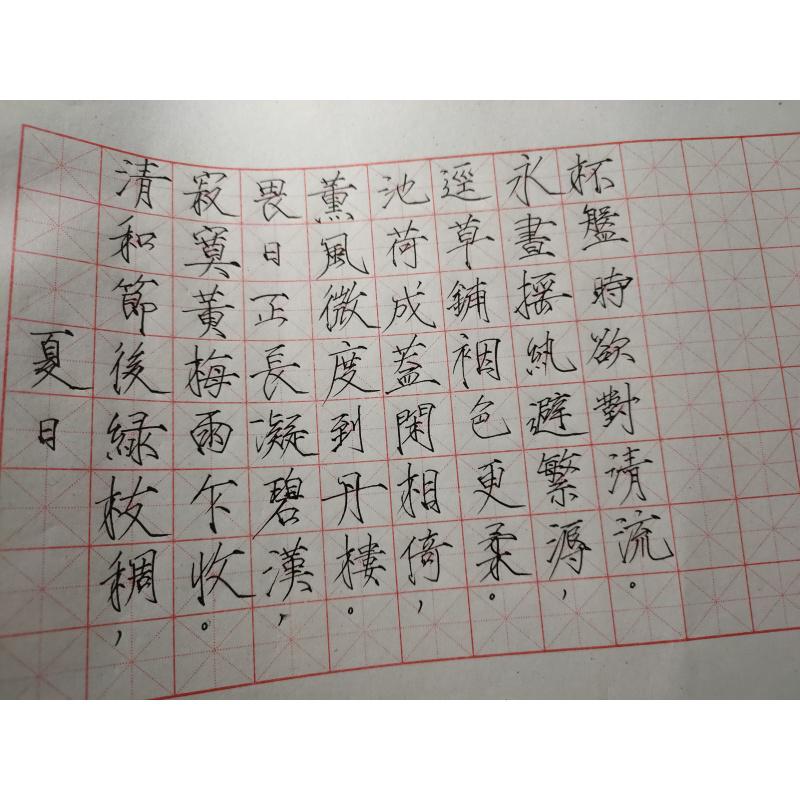 夏日
清和節後緑枝稠，
寂寞黃梅雨乍收。
畏日正長凝碧漢，
薰風微度到丹樓。
池荷成蓋閑相倚，
逕草鋪裀色更柔。
永晝搖紈避繁溽，
杯盤時欲對清流。